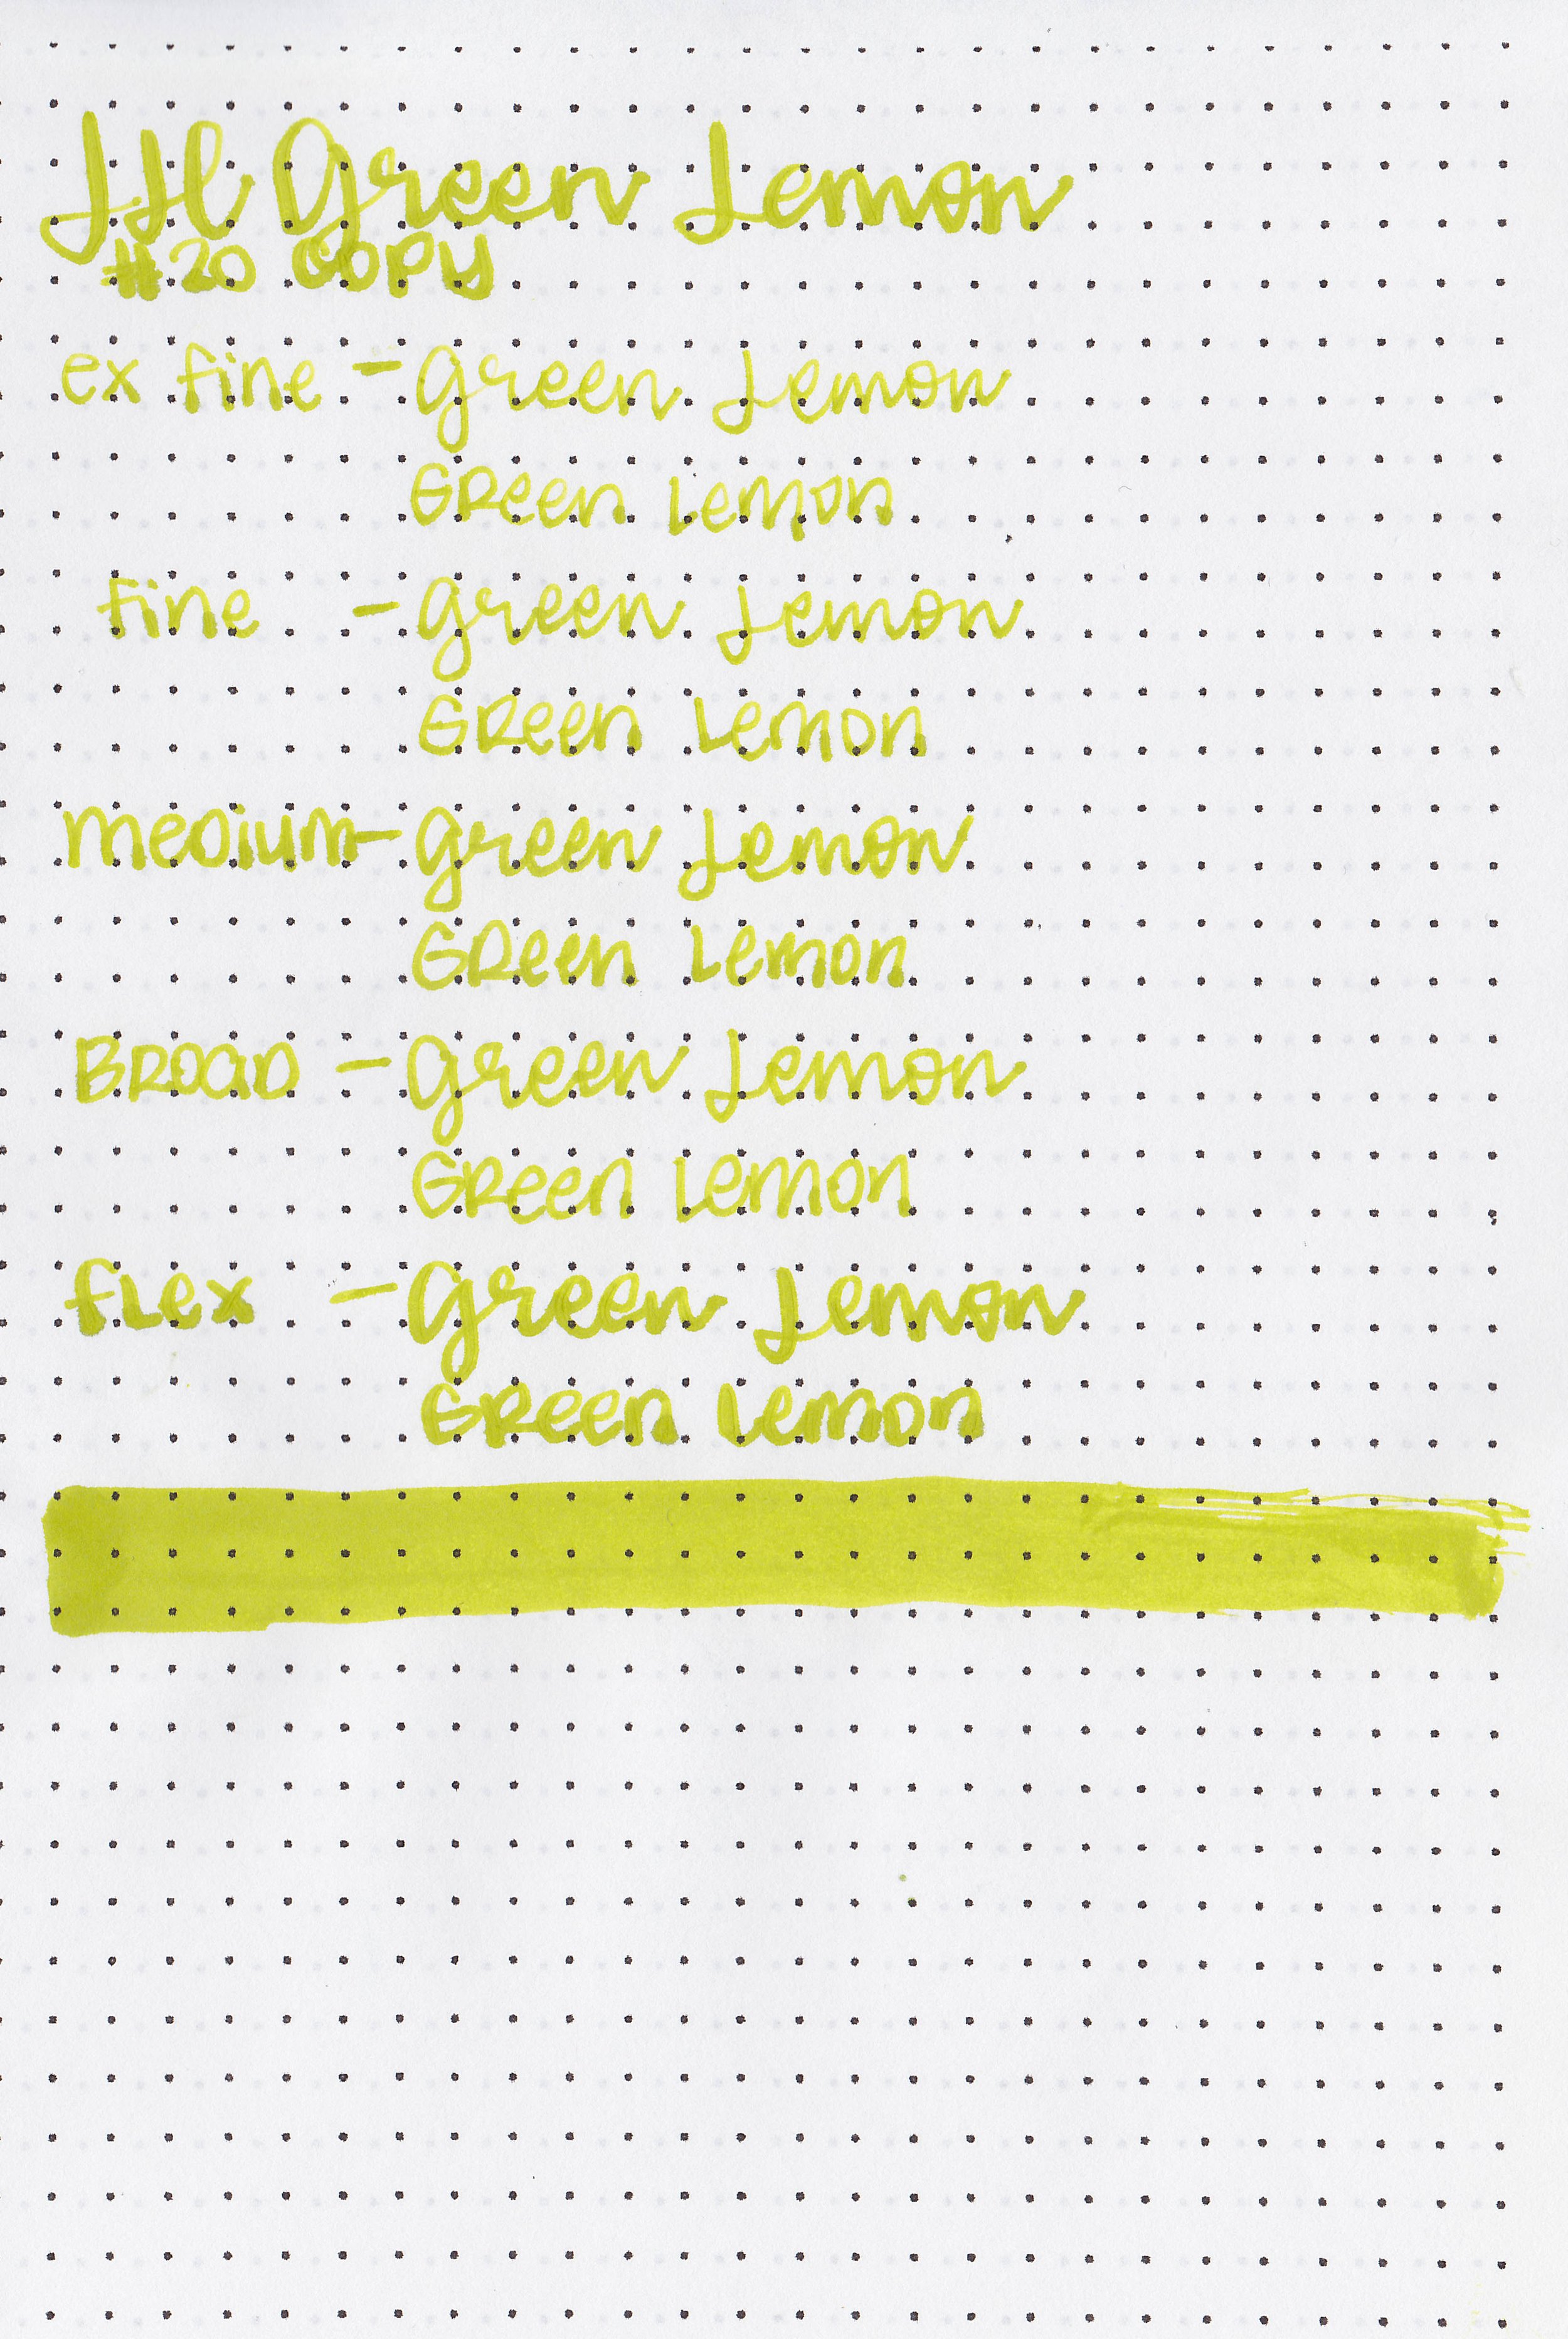 JJL Green Lemon
#20 COPY
ex fine - Green Lemon
Green Lemon
fine - Green Lemon
Green Lemon
medium - Green Lemon
Green Lemon
Broad - Green Lemon
Green Lemon
flex - Green Lemon
Green Lemon